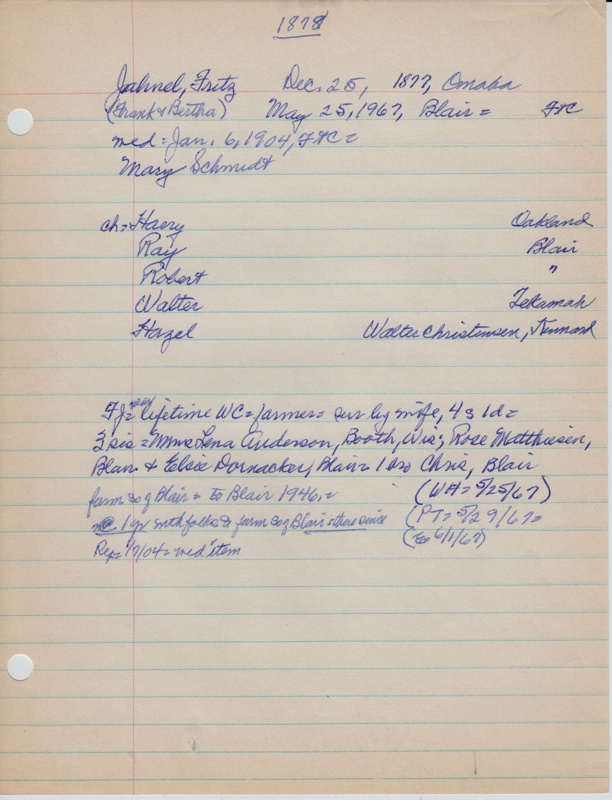 1878
Jahnel, Fritz Dec. 25, 1877, Omaha
(Frank & Bertha) May 25, 1967, Blair = FtC
med = Jan. 6, 1904, FtC =
Mary Schmidt
ch = Harry Oakland
Ray Blair
Robert "
Walter Tekamah
Hazel Walter Christensen, Kennard
FJ = lifetime WC = farmer = sur by wife, 4 s 1 d =
3 sis = Mmes Lena Anderson, Booth, Wis; Rose Matthiesen,
Blair & Elsie Dornacker, Blair = 1 bro Chris, Blair
farm so of Blair = to Blair 1946 =
(WH = 5/25/67)
1 yr with folks & farm so of Blair = there since
(PT = 5/29/67 =
(En 6/1/67)
Rep = 1/7/04 = wed item